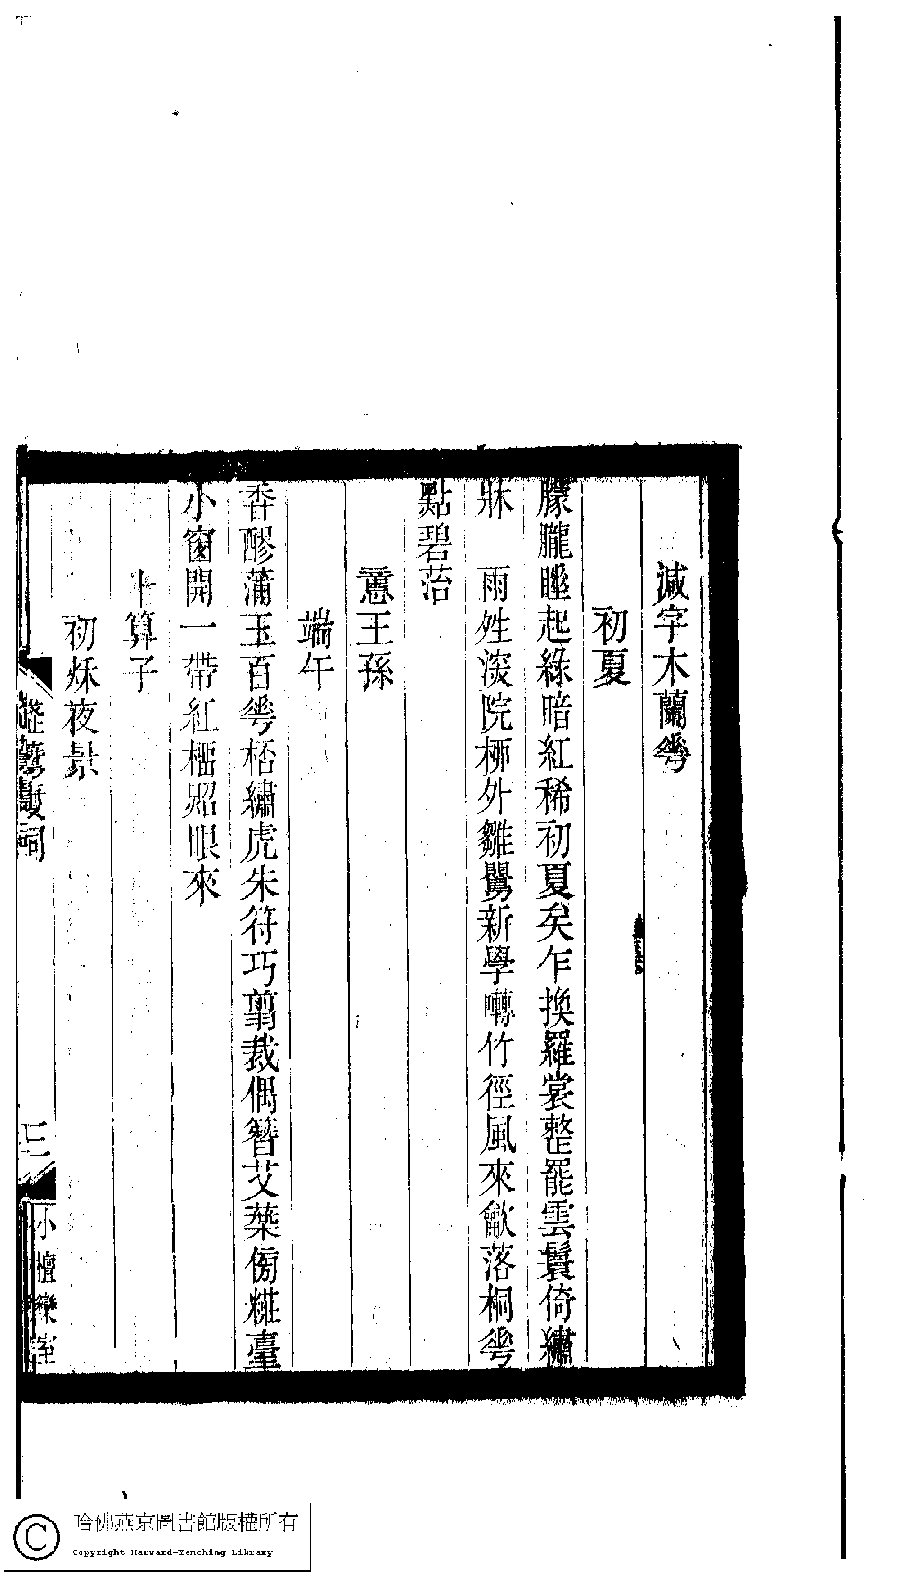 減字木蘭䕎
初夏
朦朧睡起綠暗紅稀初夏矣乍換羅裳整罷雲鬟倚繡
牀　雨姓深院桺外雛鸎新學囀竹徑風來歘落桐䕎
點碧苔
憶王孫
端午
香醪蒲玉百䕎桮繡虎朱符巧翦裁偶簪艾葉傍糚臺
小窗開一帶紅榴炤眼來
卜算子
初秌夜景
詞
三
小檀欒室
哈佛燕京圖書館版權所有
Copyright Harvard-Yenching Library